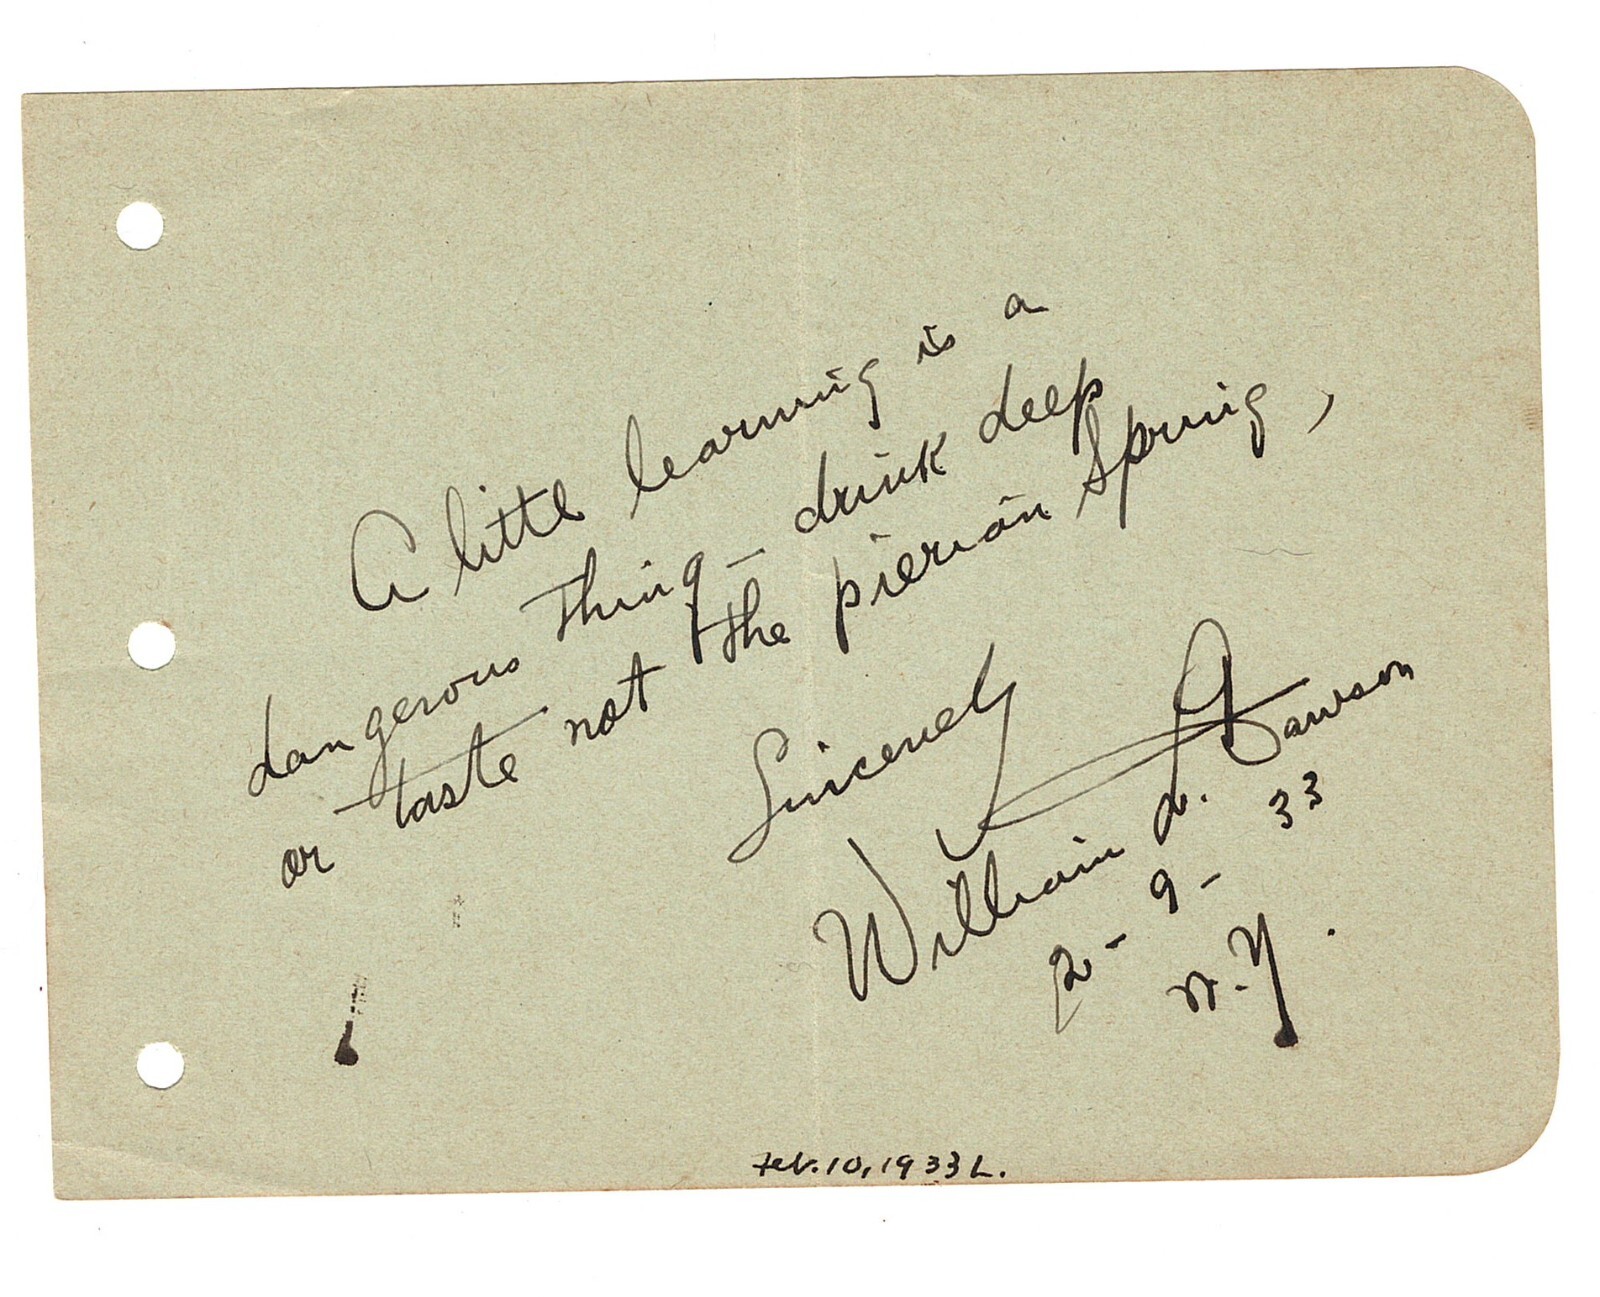 A little learning is a
dangerous thing - drink deep
or taste not the pierian Spring,
Sincerely
William L. Dawson
2-9-33
N.Y.
Feb. 10, 1933 L.